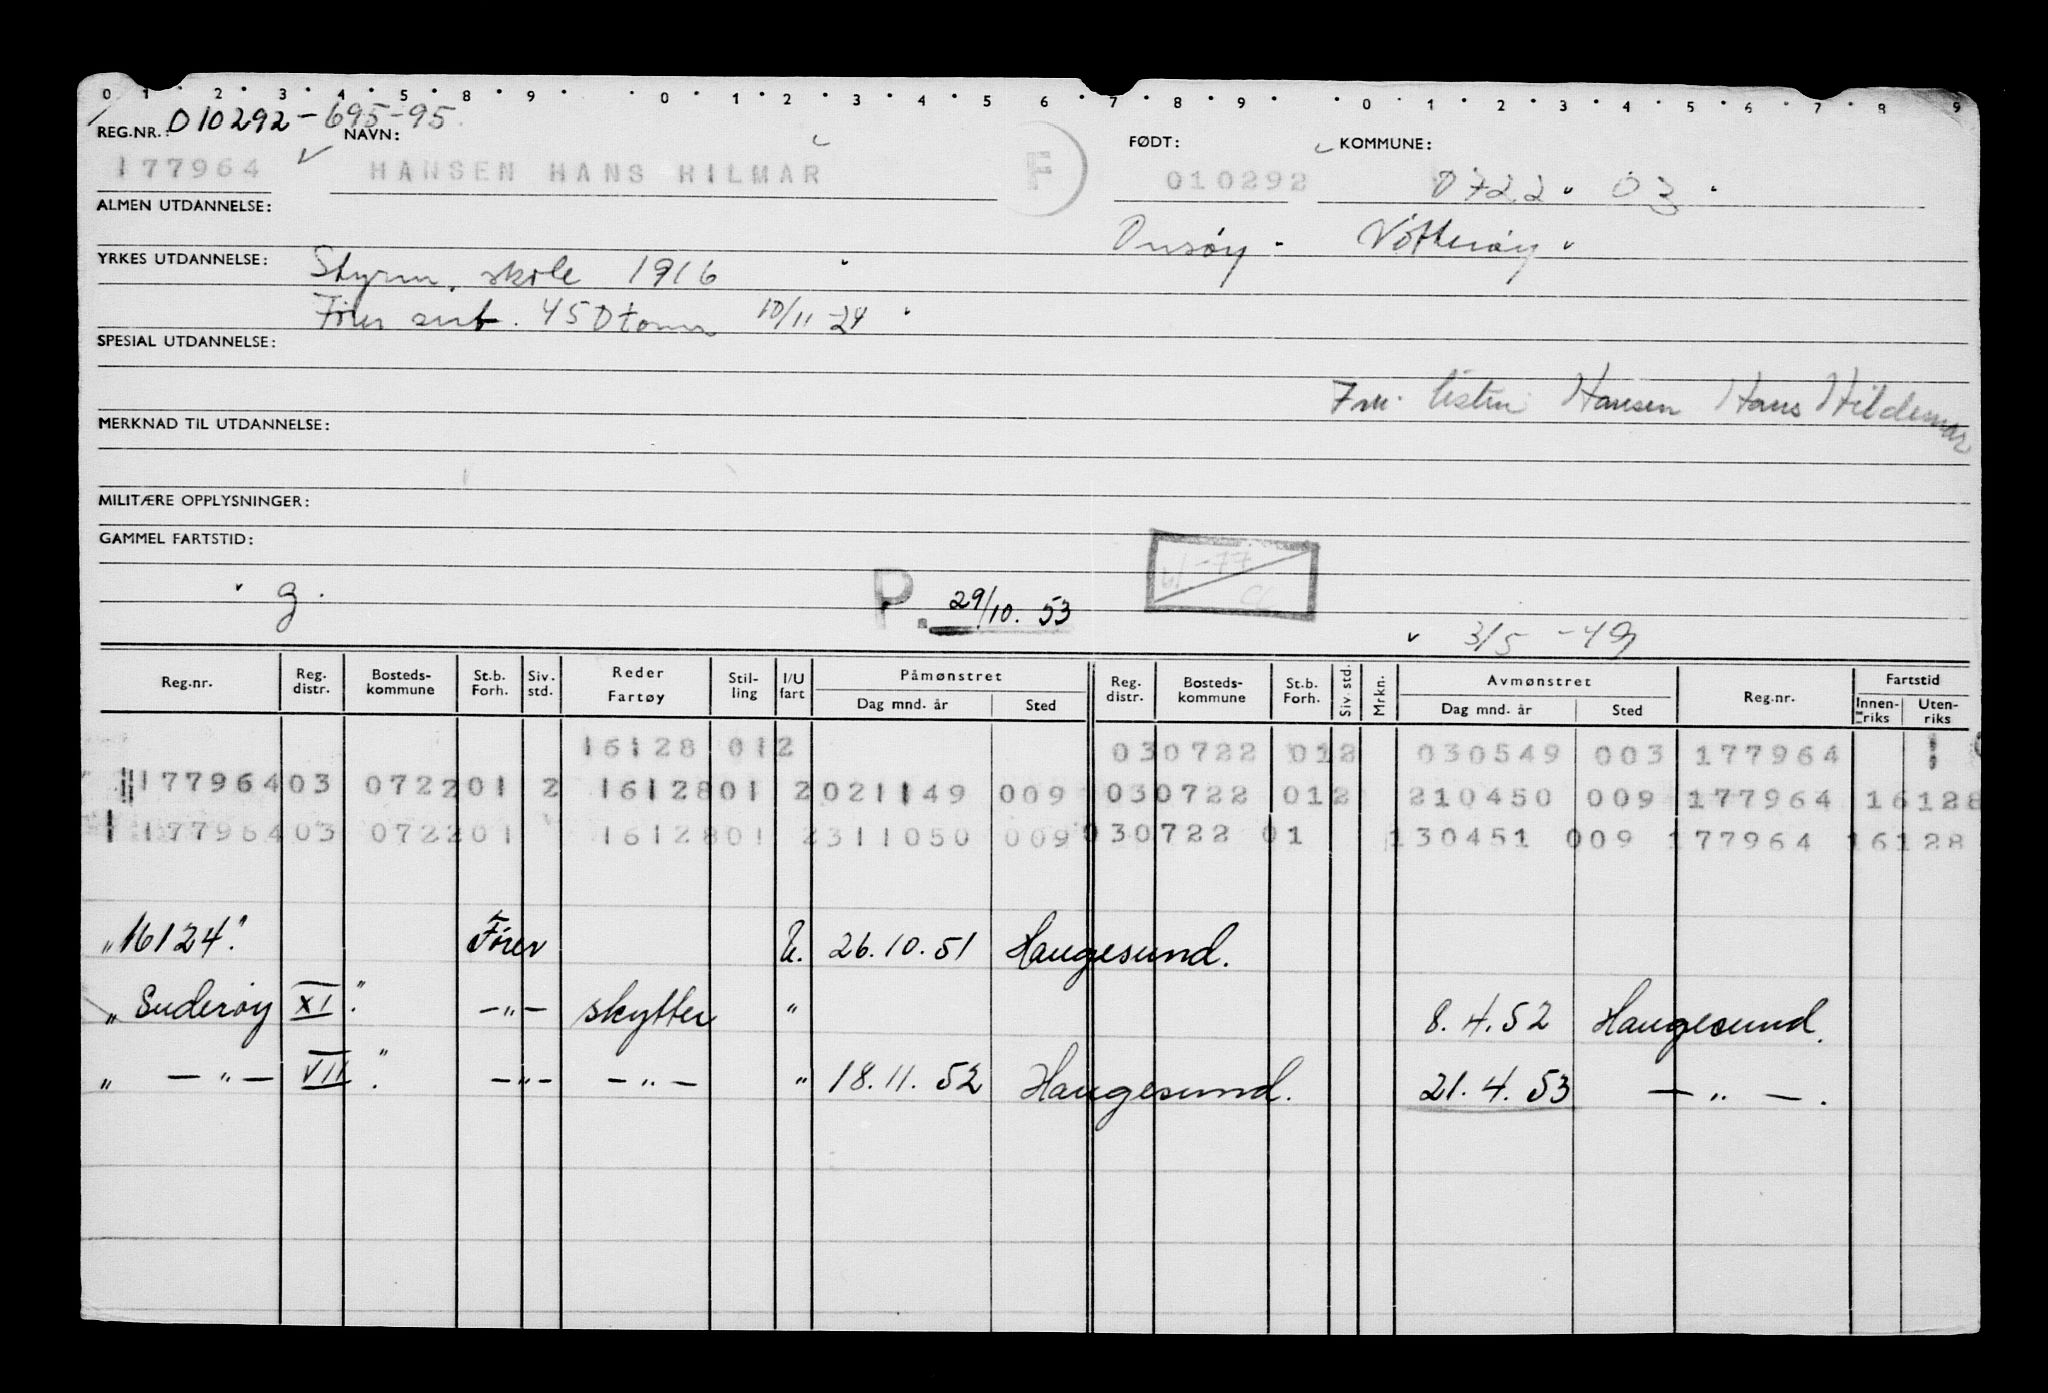 0 1 2 3 4 5 8 9 0 1 2 3 4 5 6 7 8 9 0 1 2 3 4 5 6 7 8 9
REG.NR.: 010292-695-95. NAVN: FØDT: KOMMUNE:
177964 HANSEN HANS HILMAR F 010292 0722 03
ALMEN UTDANNELSE:
Onsöy. Nötteröy
YRKES UTDANNELSE: Styrm. skole 1916
Förer sert. 450 tonn 10/11-24
SPESIAL UTDANNELSE:
listen Hansen Hans Hildemar
MERKNAD TIL UTDANNELSE:
MILITÆRE OPPLYSNINGER:
GAMMEL FARTSTID:
-77
g. P. 29/10. 53
3/5 -49
Reg.nr. Reg. distr. Bosteds-kommune St.b. Forh. Siv. std. Reder Fartøy Stil-ling I/U fart Påmønstret Dag mnd. år Sted Reg. distr. Bosteds-kommune St.b. Forh. Siv. std. Mrkn. Avmønstret Dag mnd. år Sted Reg.nr. Fartstid Innen-riks Uten-riks
16128 012 030722 012 030549 003 177964
177964 03 072201 2 1612801 2021149 009 030722 012 210450 009 177964 16128
177964 03 072201 1612801 2311050 009 030722 01 130451 009 177964 16128
"16124". Förer U. 26.10.51 Haugesund.
"Suderöy XI". -"- skytter " 8.4.52 Haugesund.
" -"- VII". -"- -"- " 18.11.52 Haugesund. 21.4.53 -"-.